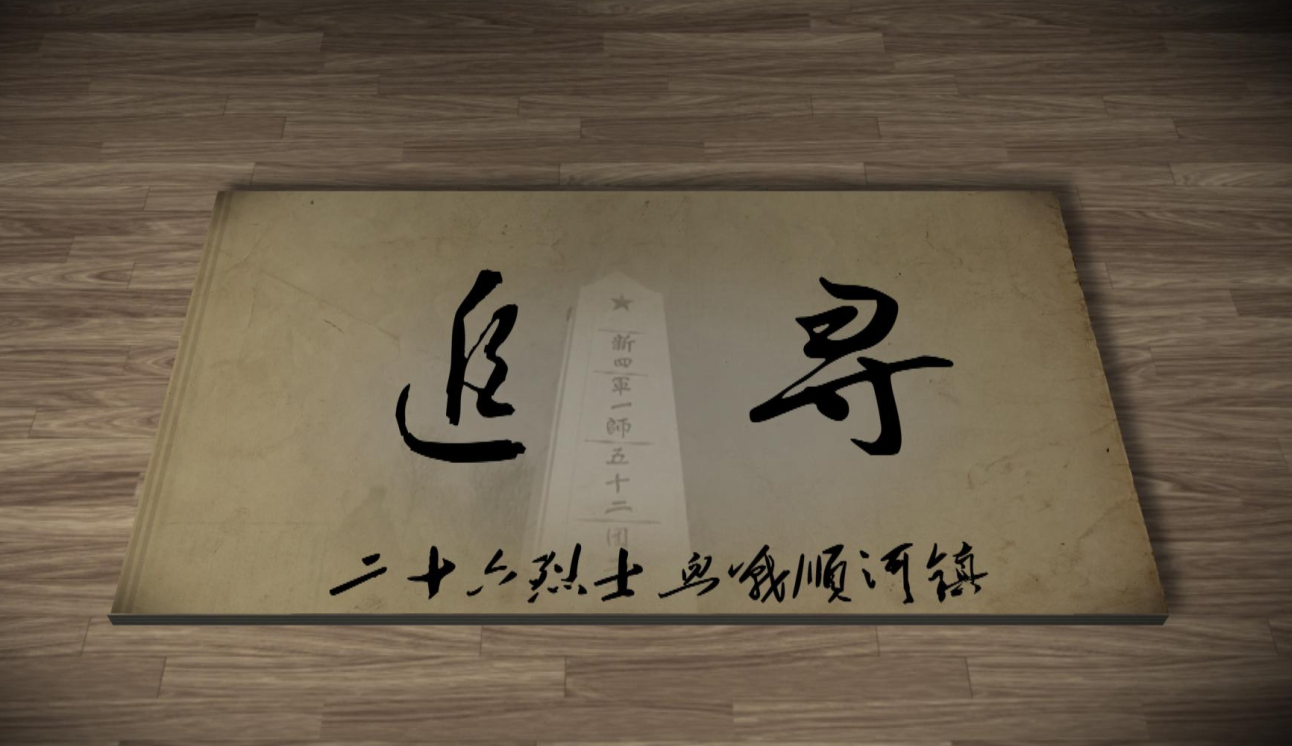 追寻
新四軍一師五十二团
二十六烈士血哦順河镇